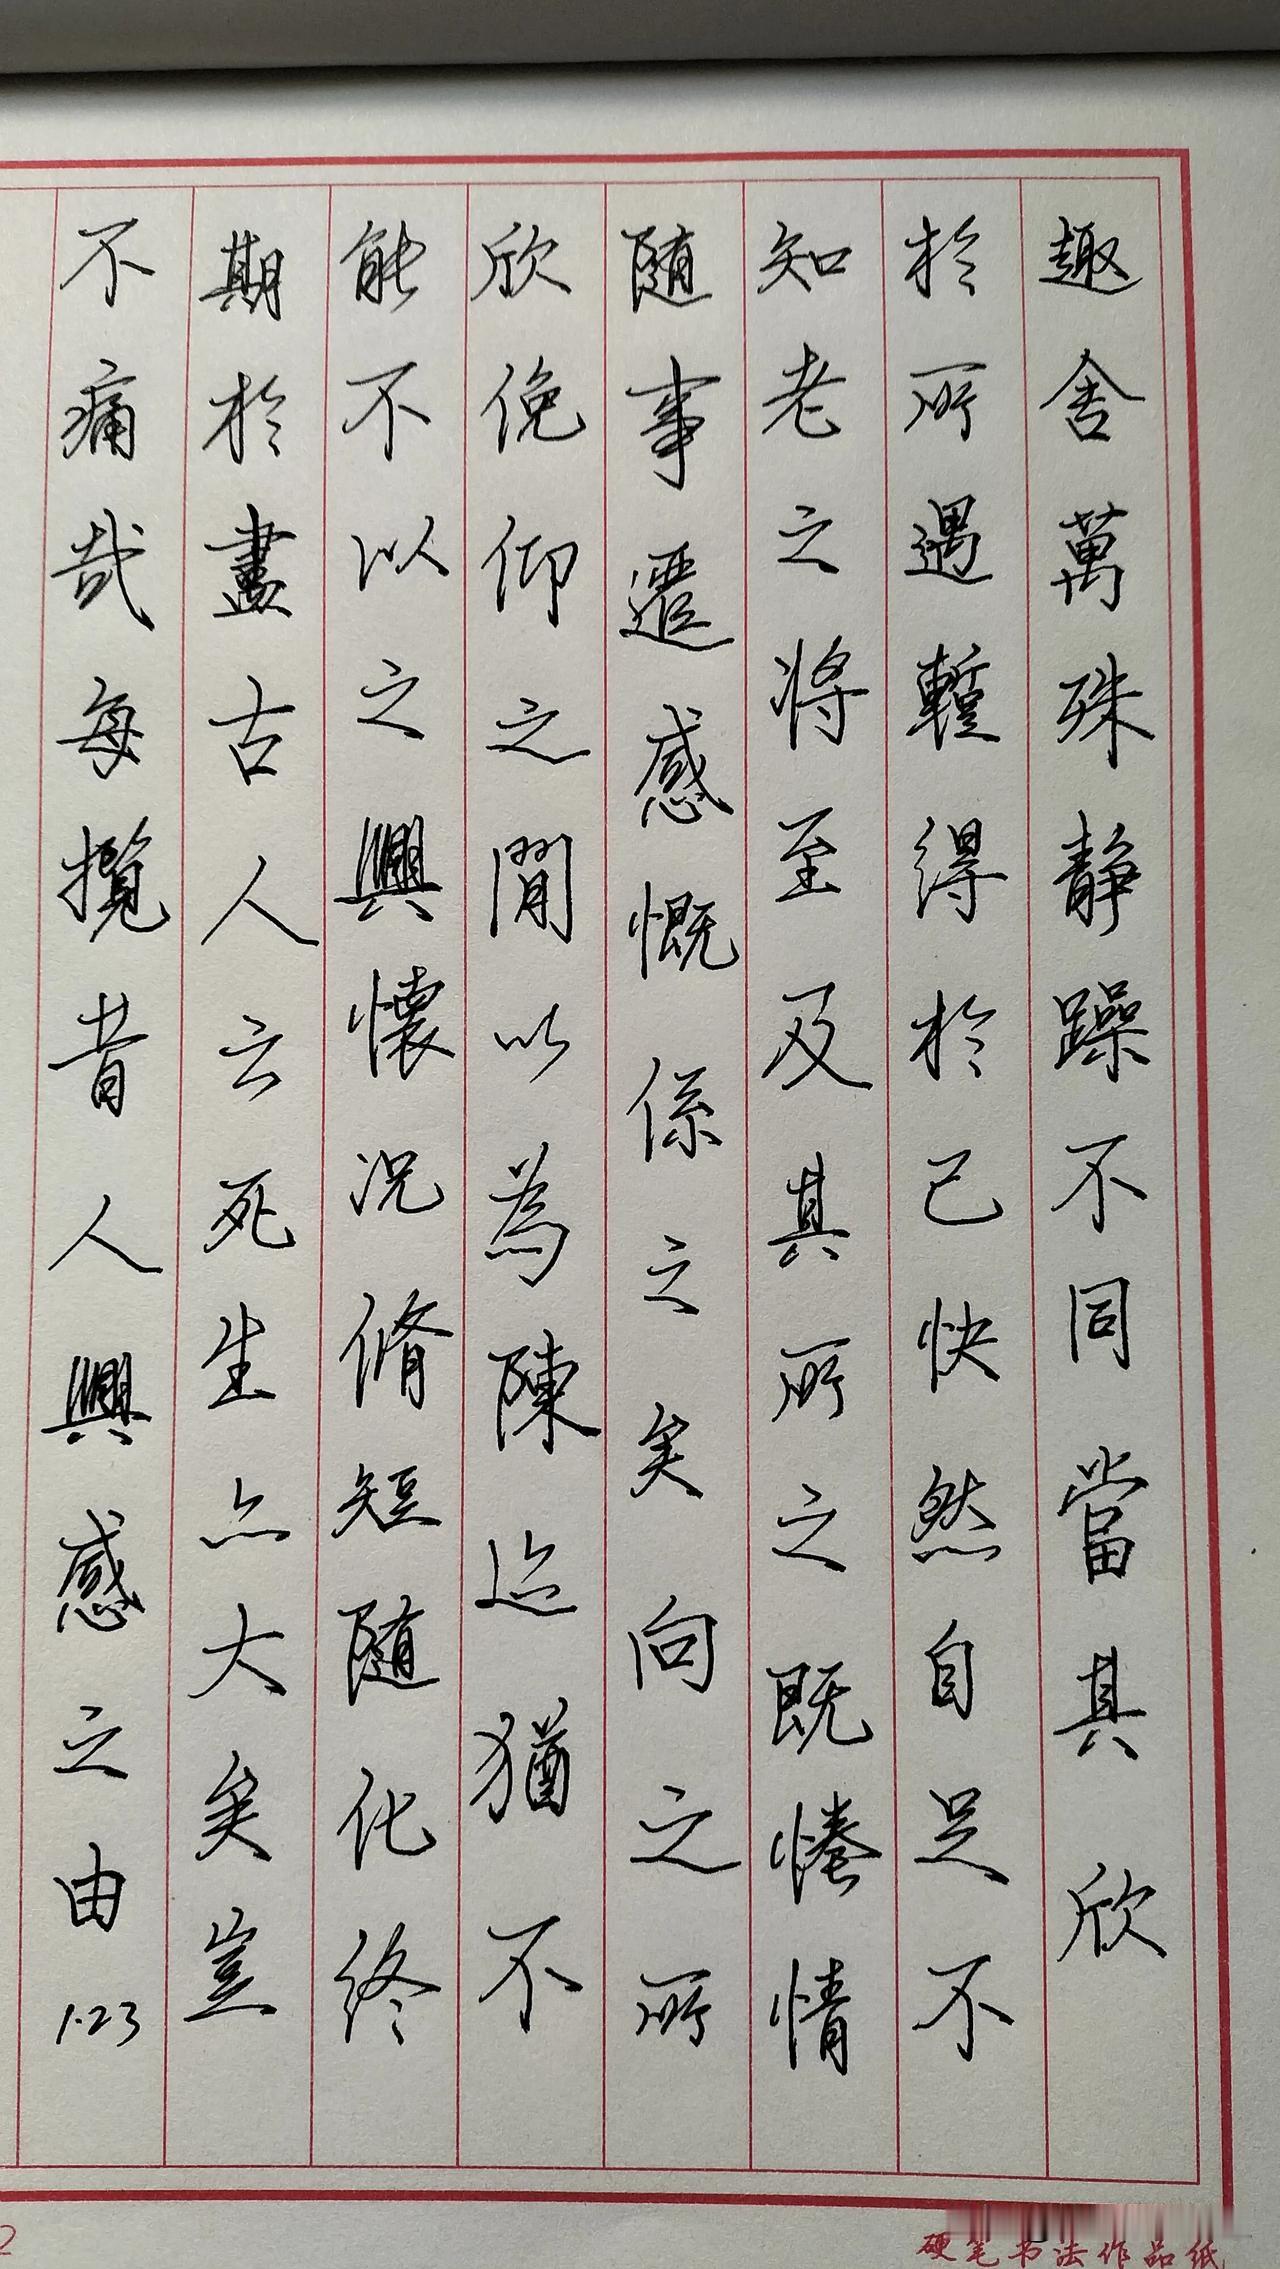 趣舍萬殊静躁不同當其欣
於所遇暫得於己快然自足不
知老之将至及其所之既惓情
随事遷感慨係之矣向之所
欣俛仰之閒以為陳迹猶不
能不以之興懷况脩短随化終
期於盡古人云死生亦大矣豈
不痛哉每攬昔人興感之由1.23
硬笔书法作品纸
2